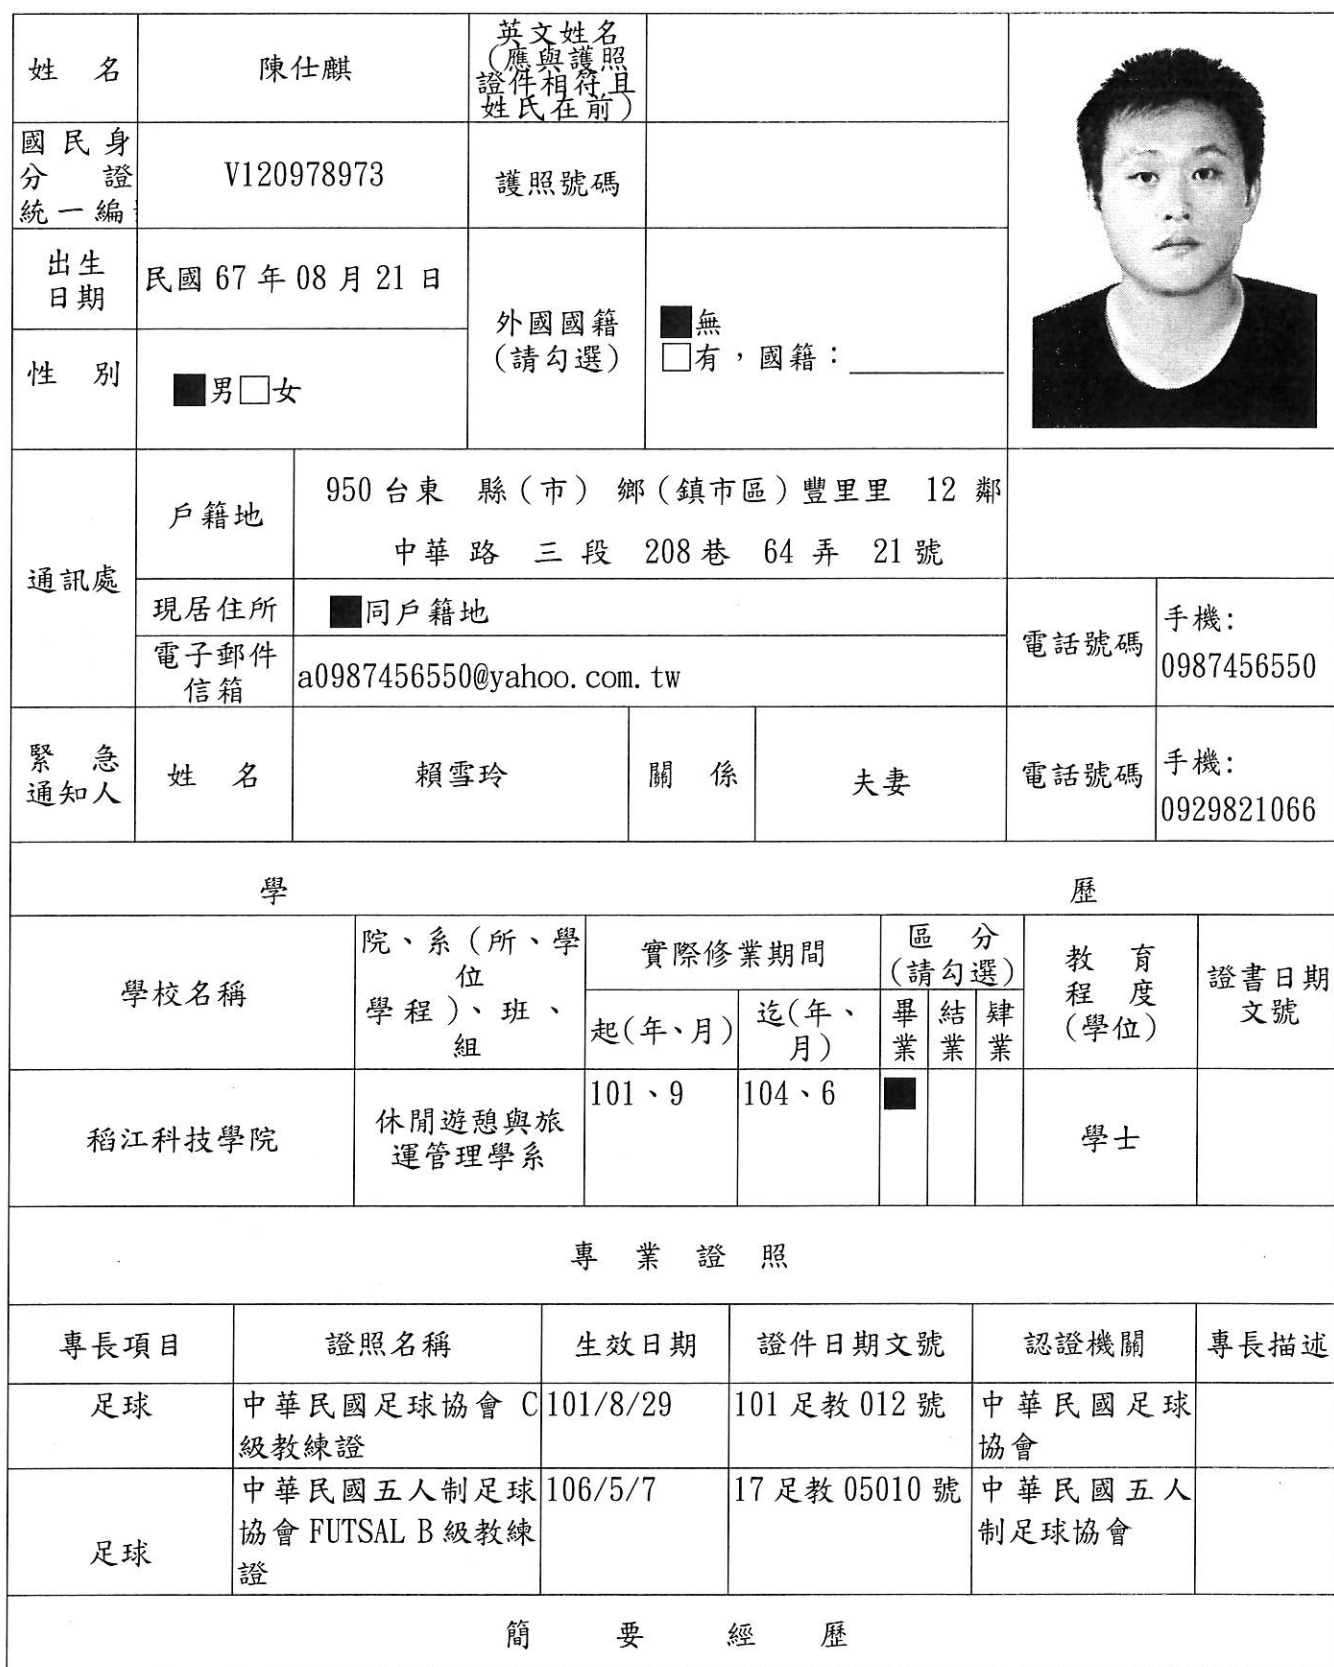 姓　名
陳仕麒
英文姓名
（應與護照
證件相符且
姓氏在前）
國民身
分　證
統一編
V120978973
護照號碼
出生
日期
民國 67 年 08 月 21 日
外國國籍
(請勾選)
■無
□有，國籍：
性　別
■男□女
通訊處
戶籍地
950 台東　縣（市） 鄉（鎮市區）豐里里　12 鄰
中華 路　三 段　208 巷　64 弄　21 號
現居住所
■同戶籍地
電子郵件
信箱
a0987456550@yahoo.com.tw
電話號碼
手機:
0987456550
緊　急
通知人
姓　名
賴雪玲
關　係
夫妻
電話號碼
手機:
0929821066
學　歷
學校名稱
院、系（所、學
位
學程）、班、
組
實際修業期間
起(年、月)
迄(年、
月)
區　分
(請勾選)
畢
業
結
業
肄
業
教　育
程　度
(學位)
證書日期
文號
稻江科技學院
休閒遊憩與旅
運管理學系
101、9
104、6
■
學士
專 業 證 照
專長項目
證照名稱
生效日期
證件日期文號
認證機關
專長描述
足球
中華民國足球協會 C
級教練證
101/8/29
101 足教 012 號
中華民國足球
協會
足球
中華民國五人制足球
協會 FUTSAL B 級教練
證
106/5/7
17 足教 05010 號
中華民國五人
制足球協會
簡　要　經　歷